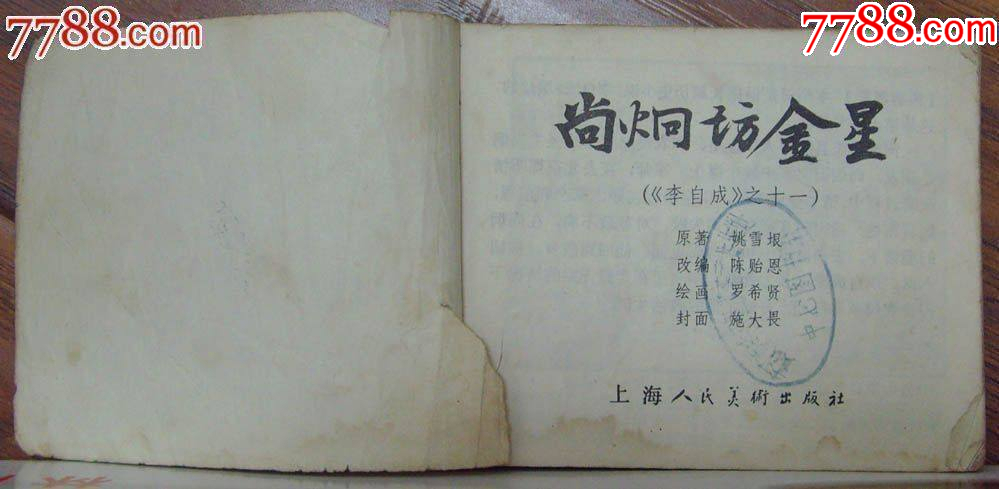 7788.com
7788.com
尚炯访金星
(《李自成》之十一)
原著 姚雪垠
改编 陈贻恩
绘画 罗希贤
封面 施大畏
上海人民美術出版社